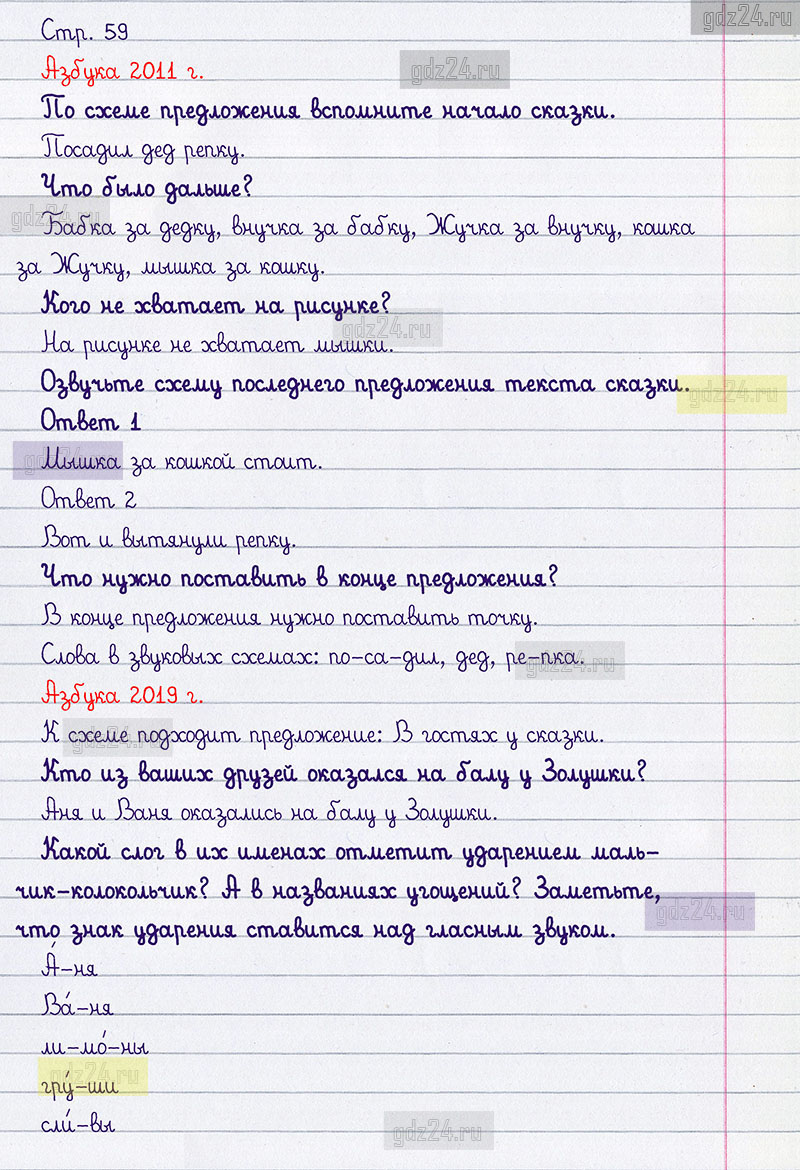 gdz24.ru
Стр. 59
Азбука 2011 г.
gdz24.ru
По схеме предложения вспомните начало сказки.
Посадил дед репку.
Что было дальше?
gdz24.ru
Бабка за дедку, внучка за бабку, Жучка за внучку, кошка
за Жучку, мышка за кошку.
Кого не хватает на рисунке?
gdz24.ru
На рисунке не хватает мышки.
Озвучьте схему последнего предложения текста сказки.
gdz24.ru
Ответ 1
gdz24.ru
Мышка за кошкой стоит.
Ответ 2
Вот и вытянули репку.
Что нужно поставить в конце предложения?
В конце предложения нужно поставить точку.
Слова в звуковых схемах: по-са-дил, дед, ре-пка.
gdz24.ru
Азбука 2019 г.
К схеме подходит предложение: В гостях у сказки.
gdz24.ru
Кто из ваших друзей оказался на балу у Золушки?
Аня и Ваня оказались на балу у Золушки.
Какой слог в их именах отметит ударением маль-
чик-колокольчик? А в названиях угощений? Заметьте,
gdz24.ru
что знак ударения ставится над гласным звуком.
А́-ня
Ва́-ня
ли-мо́-ны
gdz24.ru
гру́-ши
сли́-вы
gdz24.ru